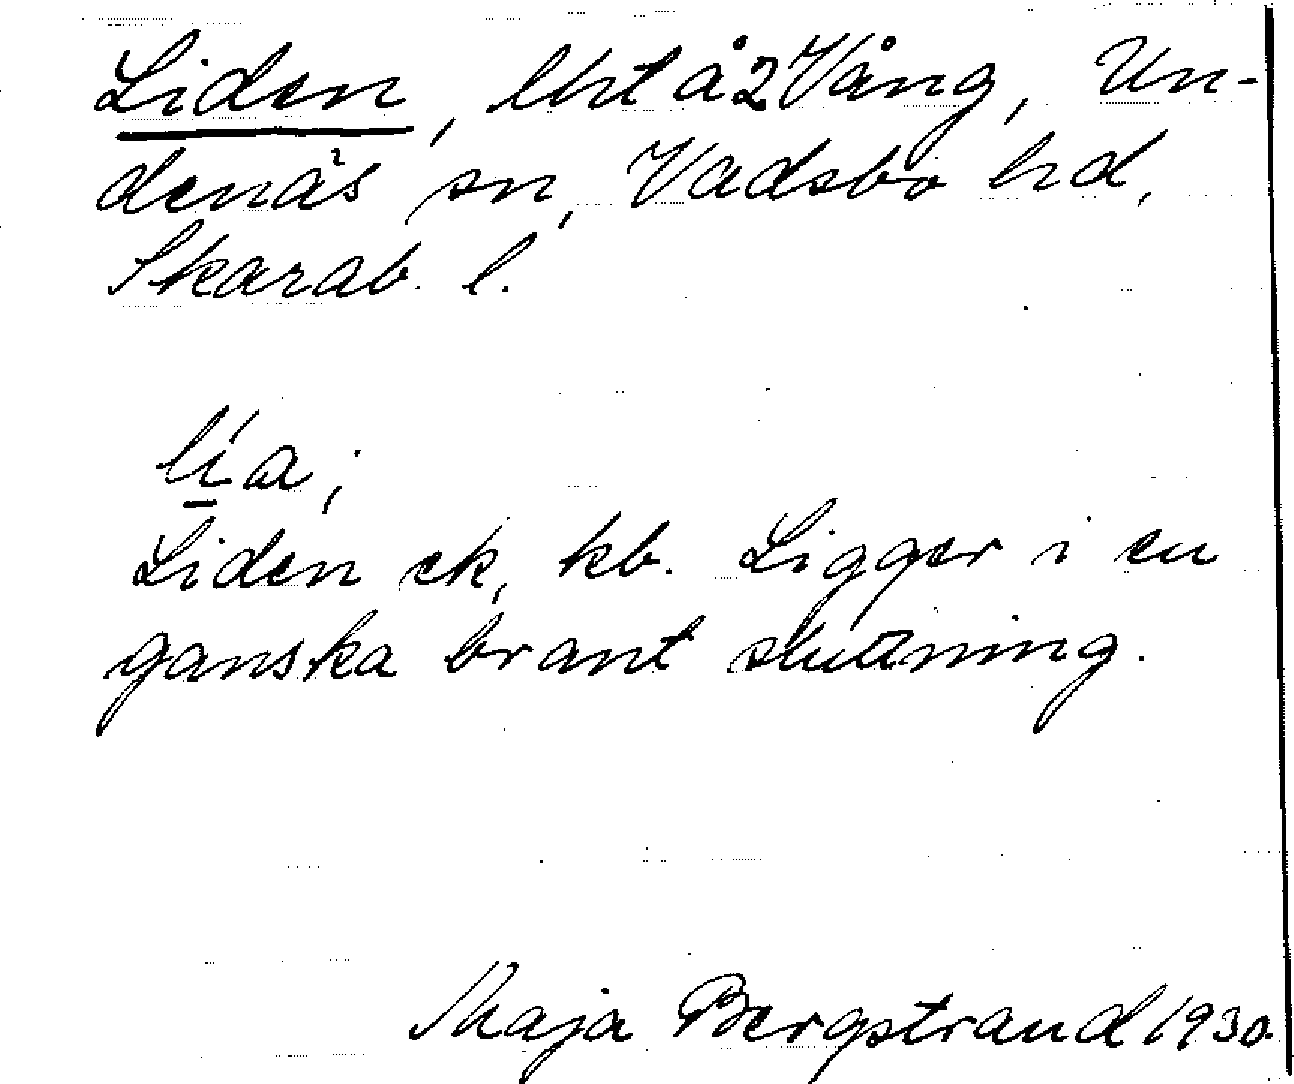 Liden, lht å 2 Vång, Un-
denäs sn, Vadsbo hd,
Skarab. l.
lía;
Liden ek, kb. Ligger i en
ganska brant sluttning.
Maja Bergstrand 1930.